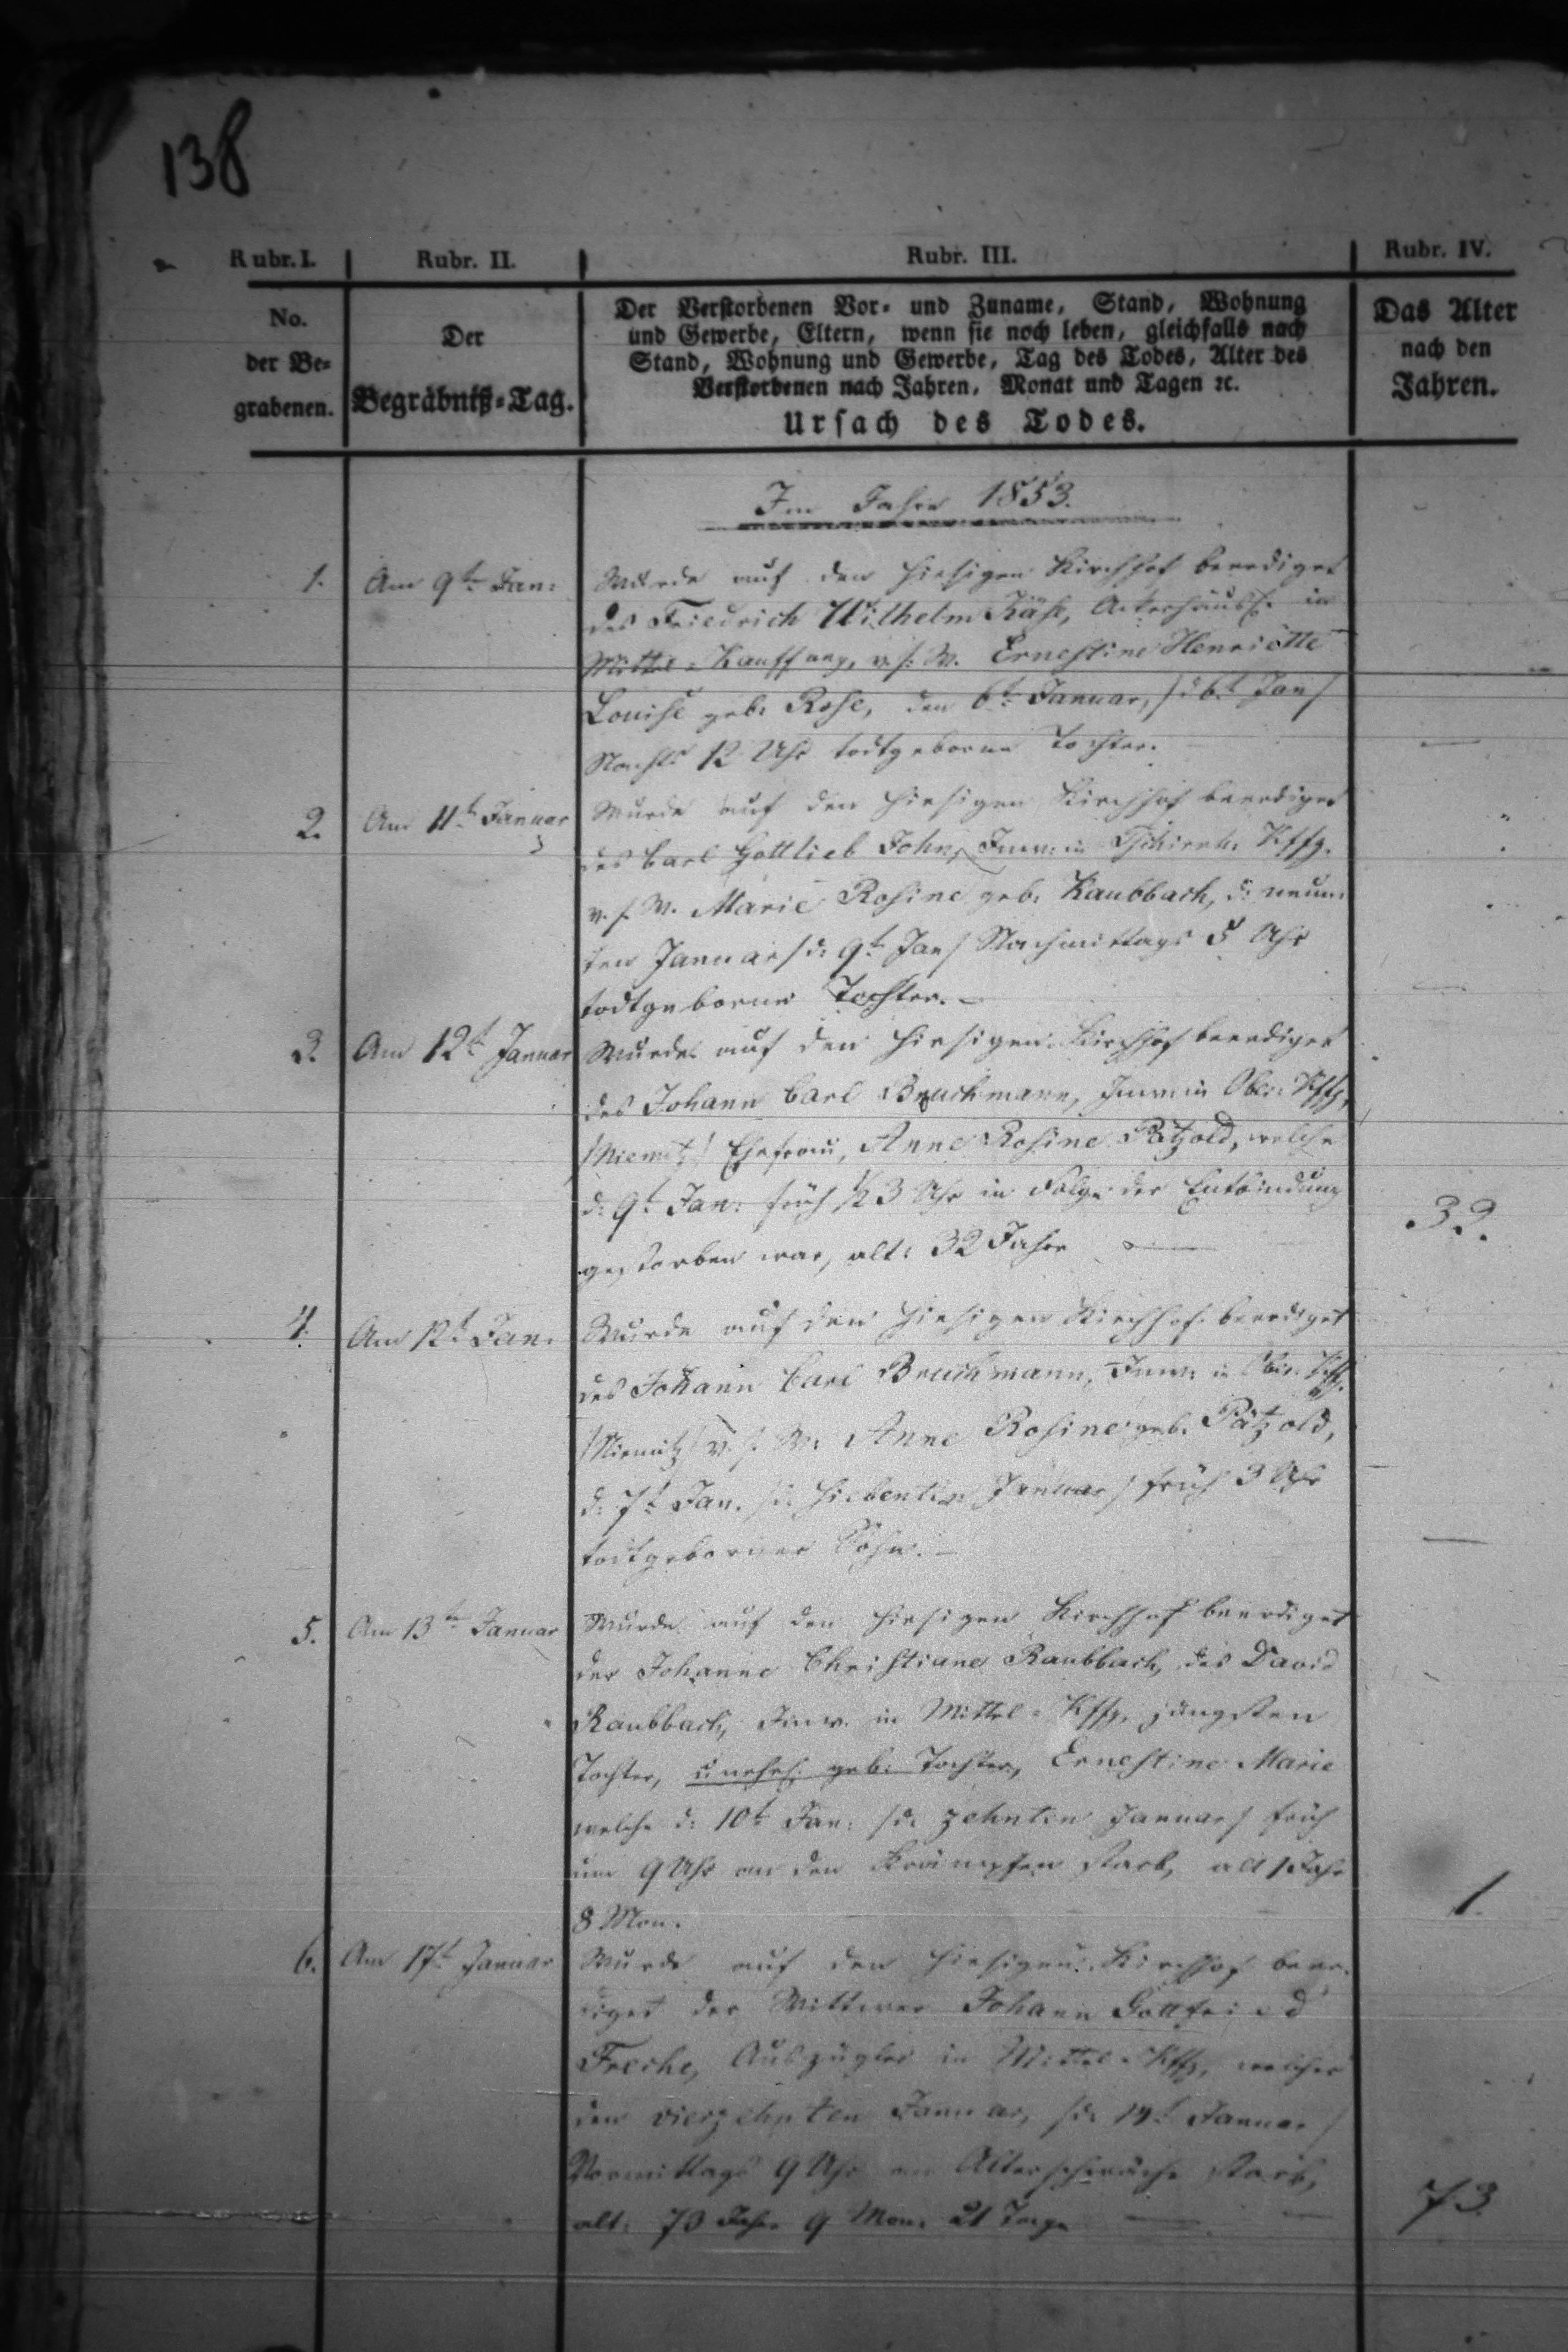 138
Rubr. I. Rubr. II. Rubr. III. Rubr. IV.
No. der Be-grabenen.
Der Begräbniß-Tag.
Der Verstorbenen Vor- und Zuname, Stand, Wohnung
und Gewerbe, Eltern, wenn sie noch leben, gleichfalls nach
Stand, Wohnung und Gewerbe, Tag des Todes, Alter des
Verstorbenen nach Jahren, Monat und Tagen ꝛc.
Ursach des Todes.
Das Alter
nach den
Jahren.
Im Jahre 1853.
1. Am 9t. Jan: Wurde auf den hiesigen Kirchhof beerdiget
des Friedrich Wilhelm Käse, Ackerhäusl. in
Mittel-Kauffung, v. s. W. Ernestine Henriette
Louise geb. Rose, den 6t. Januar, /d 6t Jan/
Nachts 12 Uhr todtgeborne Tochter. —
2. Am 11t. Januar Wurde auf den hiesigen Kirchhof beerdiget
des Carl Gottlieb John, Inw: in Tschirnh. Kffg.
v. s. W. Marie Rosine geb. Raubbach, d: neun-
ten Januar /d: 9t Jan/ Nachmittags 5 Uhr
todtgeborne Tochter. — —
3. Am 12t Januar Wurde auf den hiesigen Kirchhof beerdiget
des Johann Carl Bruchmann, Inw: in Ober-Kffg,
/Niemitz/ Ehefrau, Anne Rosine Pätzold, welche
d: 9t Jan: früh 1/2 3 Uhr in Folge der Entbindung
gestorben war, alt: 32 Jahre — 32.
4. Am 12t Jan. Wurde auf den hiesigen Kirchhof beerdiget
des Johann Carl Bruchmann, Inw: in Ober-Kffg.
/Niemitz/ v. s. W: Anne Rosine geb. Pätzold,
d: 7t Jan. /d: siebenten Januar/ früh 3 Uhr
todtgeborner Sohn. — —
5. Am 13t. Januar Wurde auf den hiesigen Kirchhof beerdiget
der Johanne Christiane Raubbach, des David
Raubbach, Inw. in Mittel-Kffg. jüngsten
Tochter, unehel. geb: Tochter, Ernestine Marie
welche d: 10t Jan: /d: zehnten Januar/ früh
um 9 Uhr an den Krämpfen starb, alt 1 Jahr
8 Mon. 1.
6. Am 17t Januar Wurde auf den hiesigen Kirchhof beer-
diget der Wittwer Johann Gottfried
Freche, Auszügler in Mittel-Kffg, welcher
den vierzehnten Januar, /d: 14t Januar/
Vormittags 9 Uhr an Altersschwäche starb,
alt: 73 Jahr 9 Mon. 21 Tage — 73